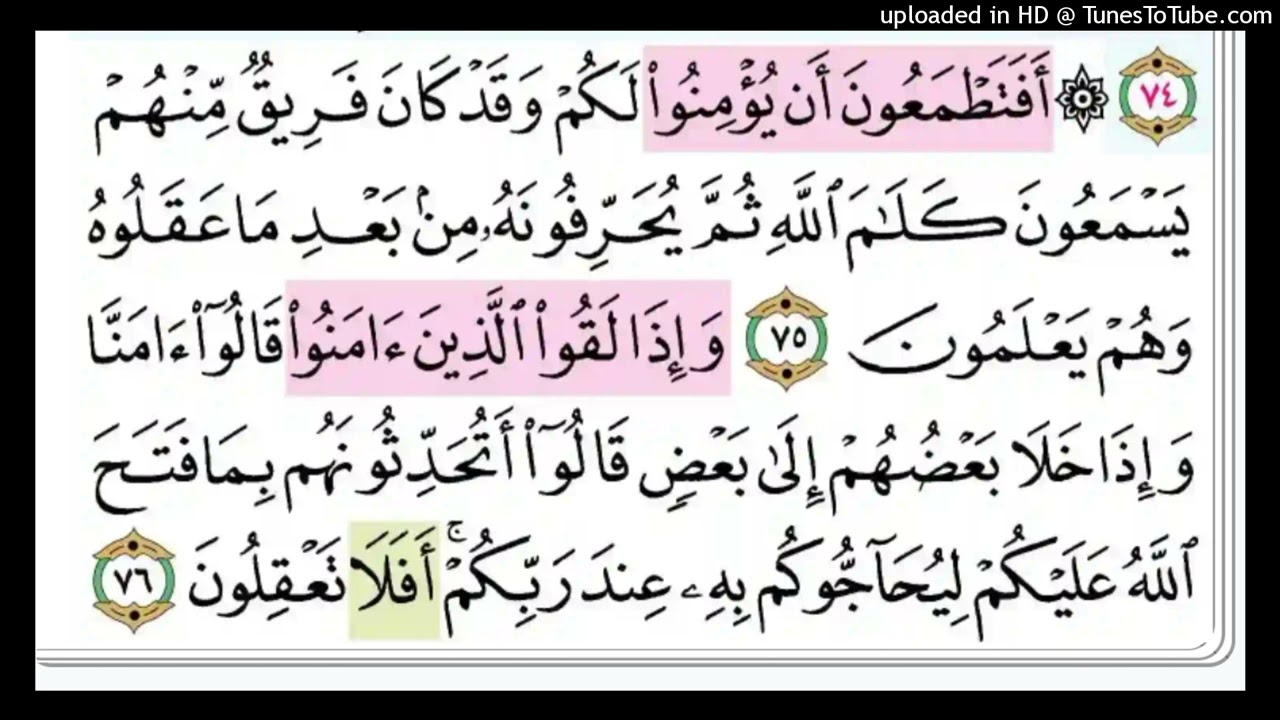 uploaded in HD @ TunesToTube.com
٧٤ ۞ أَفَتَطْمَعُونَ أَن يُؤْمِنُوا۟ لَكُمْ وَقَدْ كَانَ فَرِيقٌ مِّنْهُمْ
يَسْمَعُونَ كَلَـٰمَ ٱللَّهِ ثُمَّ يُحَرِّفُونَهُۥ مِنۢ بَعْدِ مَا عَقَلُوهُ
وَهُمْ يَعْلَمُونَ ٧٥ وَإِذَا لَقُوا۟ ٱلَّذِينَ ءَامَنُوا۟ قَالُوٓا۟ ءَامَنَّا
وَإِذَا خَلَا بَعْضُهُمْ إِلَىٰ بَعْضٍ قَالُوٓا۟ أَتُحَدِّثُونَهُم بِمَا فَتَحَ
ٱللَّهُ عَلَيْكُمْ لِيُحَآجُّوكُم بِهِۦ عِندَ رَبِّكُمْ ۚ أَفَلَا تَعْقِلُونَ ٧٦